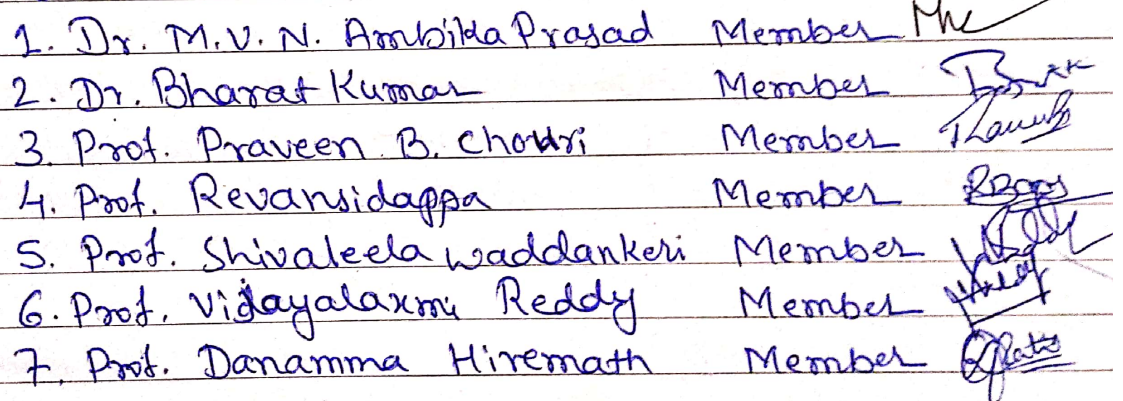 1. Dr. M.V.N. Ambika Prasad Member
2. Dr. Bharat Kumar Member
3. Prof. Praveen B. Chouri Member
4. Prof. Revansidappa Member
5. Prof. Shivaleela Waddankeri Member
6. Prof. Vijayalaxmi Reddy Member
7. Prof. Danamma Hiremath Member